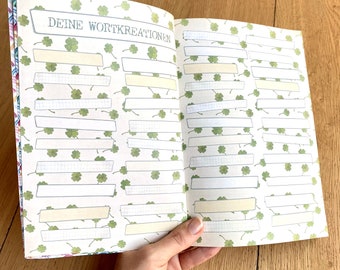 DEINE WORTKREATIONEN